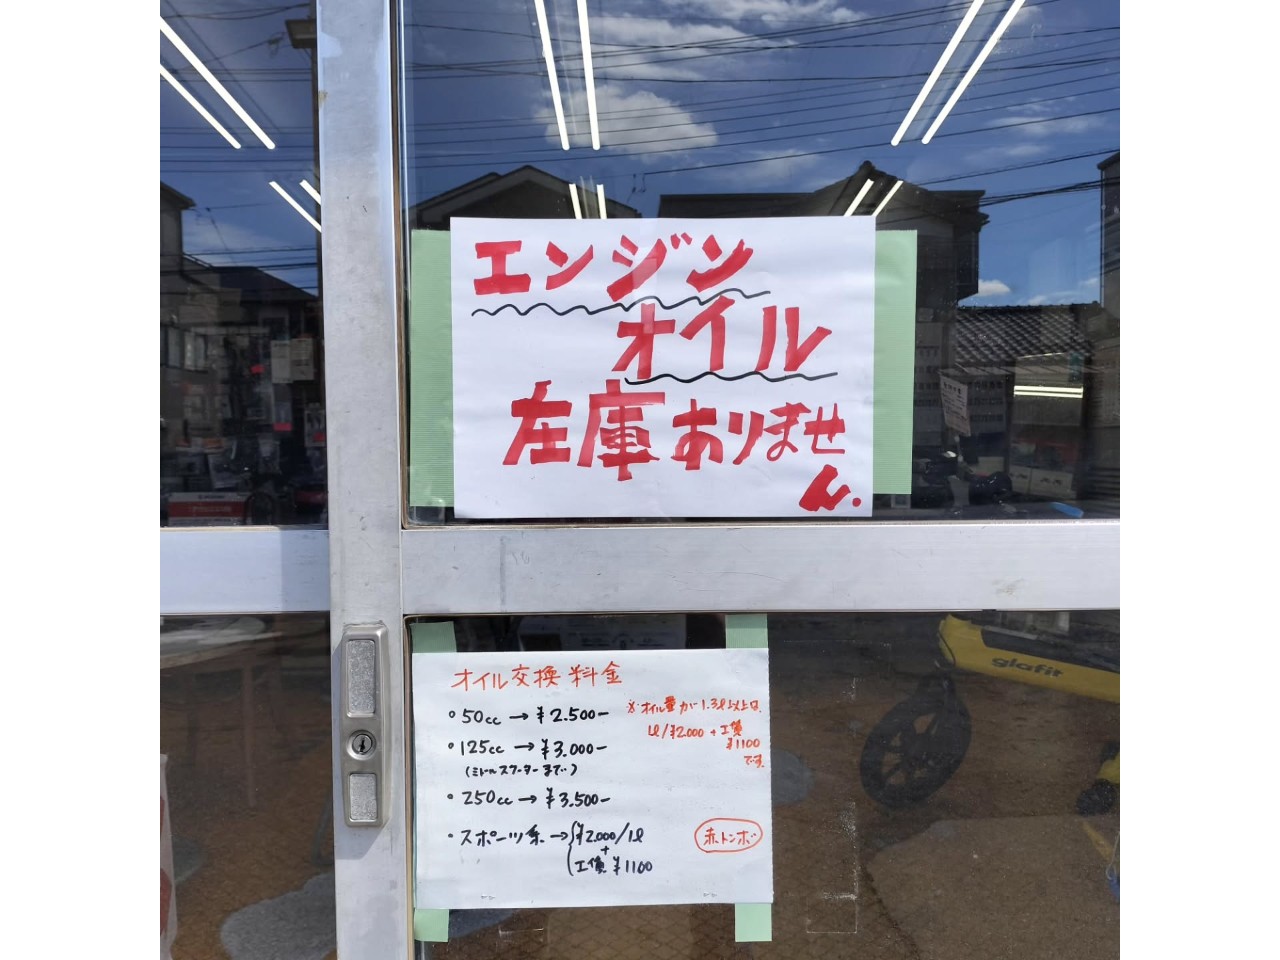 エンジン
オイル
在庫ありませ
ん.
オイル交換料金
・50cc→¥2.500−
・125cc→¥3.000−
(ミドルスクーターまで)
・250cc→¥3.500−
・スポーツ系→¥2.000/1ℓ
+
工賃¥1100
※オイル量が1.3ℓ以上は、
1ℓ/¥2000+工賃
¥1100
です。
赤トンボ
glafit